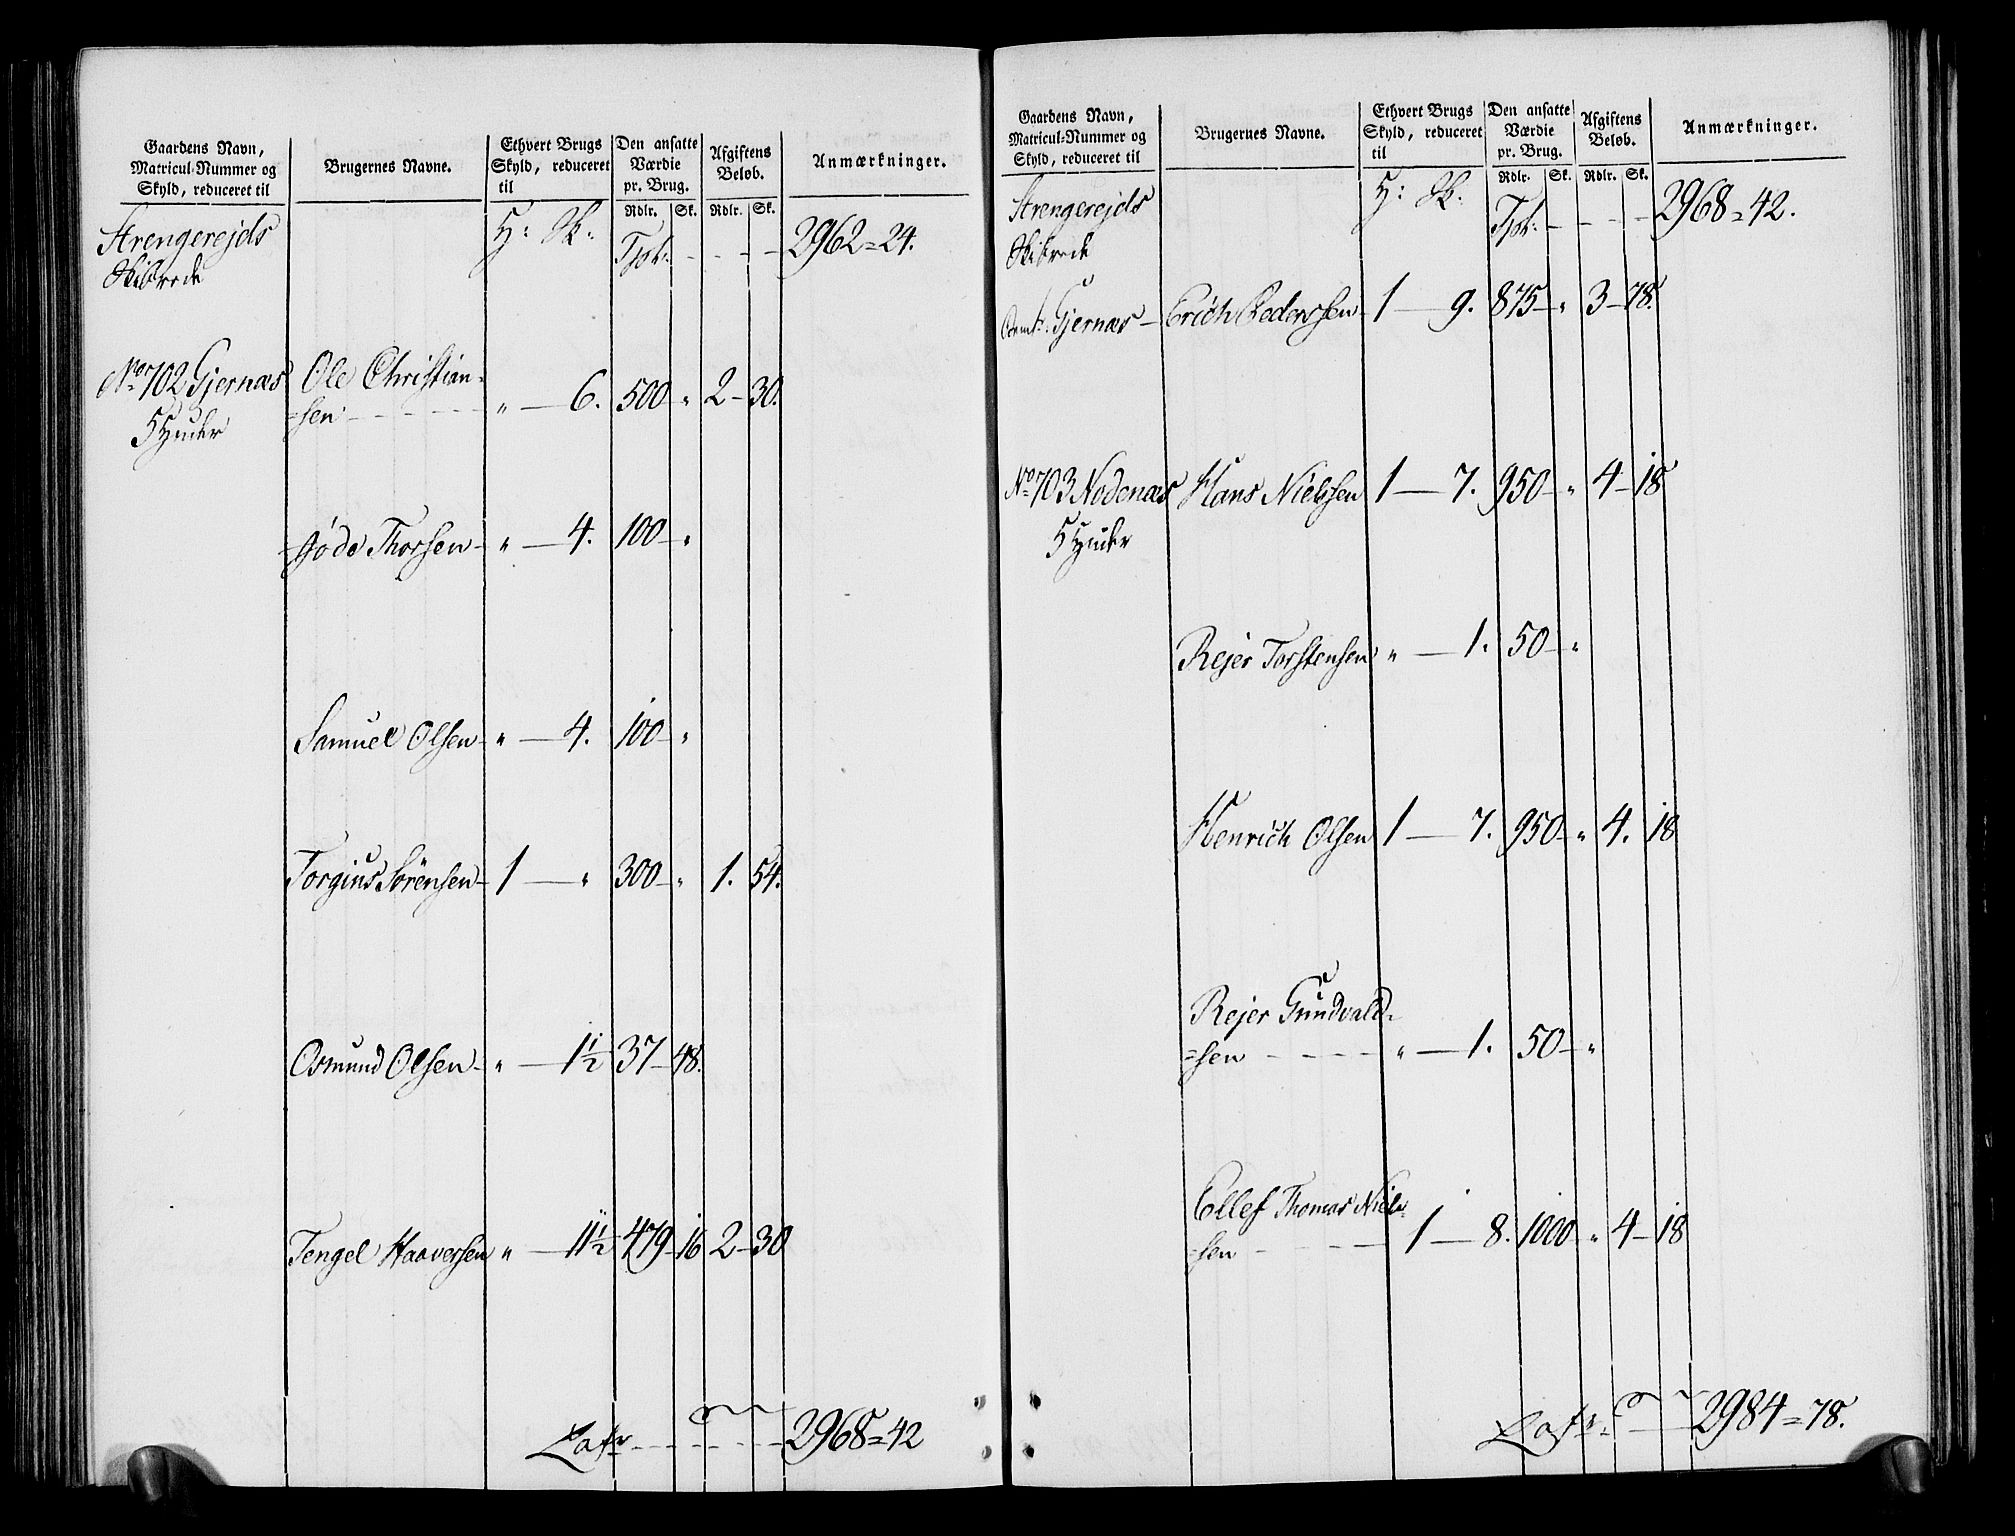 Gaardens Navn, Matricul-Nummer og Skyld, reduceret til
Brugernes Navne.
Ethvert Brugs Skyld, reduceret til
Den ansatte Værdie pr. Brug.
Afgiftens Beløb.
Anmærkninger.
Rdlr. Sk. Rdlr. Sk.
Strengerejds H: Sk: Tpt: - - - - 2962=24.
Skibrede
No 702 Gjernæs Ole Christian=
5 Huder =sen - - - " — 6. 500 " 2-30.
Gjöde Thorsen - " — 4. 100 - "
Samuel Olsen - " — 4. 100 - "
Torgius Sörensen - 1 — " 300 - " 1. 54.
Osmund Olsen - " — 1½ 37 - 48.
Tengel Haaversen " — 11½ 479 - 16 2-30
Lats - - - - 2968=42
Gaardens Navn, Matricul-Nummer og Skyld, reduceret til
Brugernes Navne.
Ethvert Brugs Skyld, reduceret til
Den ansatte Værdie pr. Brug.
Afgiftens Beløb.
Anmærkninger.
Rdlr. Sk. Rdlr. Sk.
Strengerejds H: Sk: Tpt: - - - - 2968=42.
Skibrede
Gjernæs - Erich Pederssen - 1 — 9. 875 - " 3-78.
No 703 Nodenæs Hans Nielssen 1 — 7. 950 - " 4-18
5 Huder
Rejer Torstensen " — 1. 50 - "
Henrich Olsen 1 — 7. 950 - " 4. 18
Rejer Gundvald=
=sen - - - - " — 1. 50 - "
Ellef Thomas Niels=
=sen - - - 1 — 8. 1000 - " 4-18
Lats: - - 2984=78.